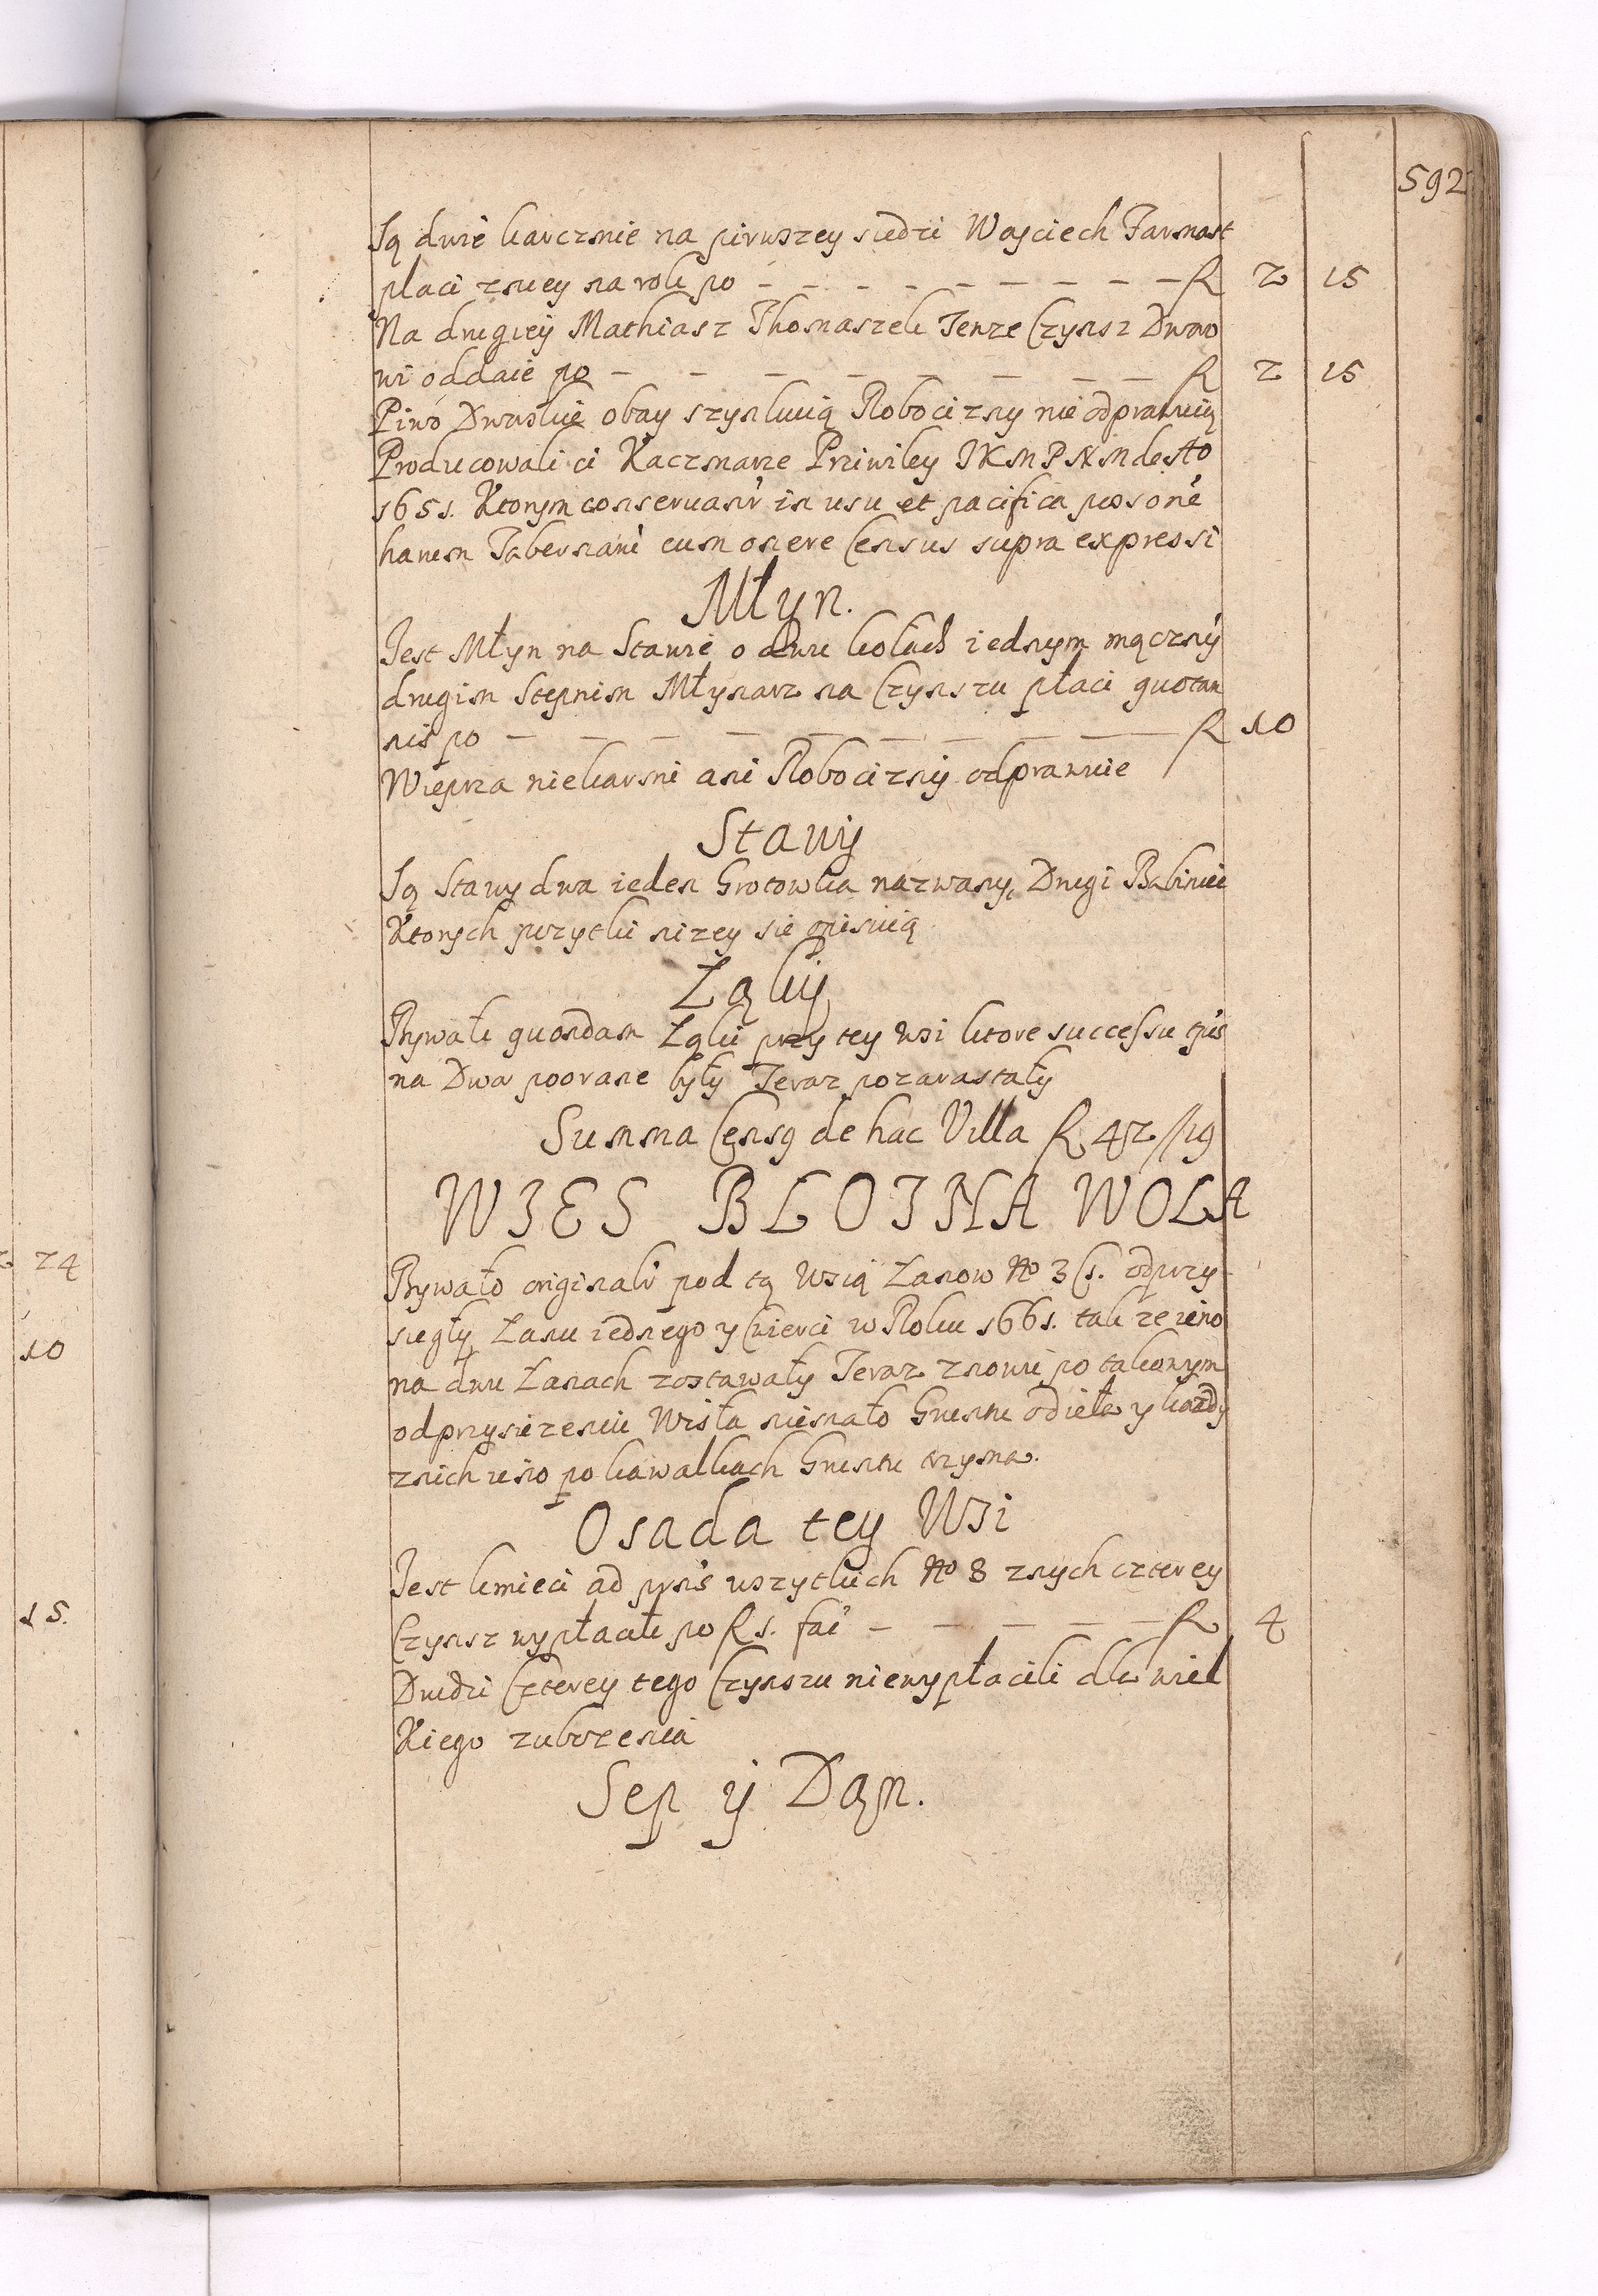 592
Są dwie karczmie na pirwszey siedzi Woyciech Jarmast
płaci zniey na rok po — — — — — — — — — R 2 15
Na drugiey Mathiasz Thomaszek Tenze Czynsz Dworo
wi oddaie po — — — — — — — — R 2 15
Piwo Dworskie obay szynkuią Robocizny nie odprawuią
Producowali ci Kaczmarze Priwiley JKM P N M de Ao
1651. Ktorym conseruant in usu et pacifica possone
harum Tabernarū cum onere Census supra expressi
Młyn.
Jest Młyn na Stawie o dwu kołach iednym mączny
drugim Stepnim Młynarz na Czynszu płaci quotan
nis po — — — — — — — — — R 10
Wieprza niekarmi ani Robocizny odprawuie
Stawy
Są Stawy dwa ieden Grotowka nazwany, Drugi Babiniec
Ktorych pozytki nizey sie opisuią
Łąky
Bywałi quondam Łąki przy tey wsi ktore successu tpis
na Dwor poorane były Teraz pozarastały
Summa Censq de hac Villa R 42//19
WIES BLOTNA WOLA
Bywało originalr pod tą Wsią Łanow No 3 Cs. odprzy
siegły Łanu iednego y Cwierci w Roku 1661. tak ze ieno
na dwu Łanach zostawały Teraz znowu po takowym
odprzysiezeniu Wisła niemało Gruntu odieła y kozdy
znich ieno po kawałkach Gruntu trzyma.
Osada tey Wsi
Jest kmieci ad prns wszytkich No 8 znych czterey
Czynsz wypłacałi po R 1. fac — — — — — R 4
Drudzi Czterey tego Czynszu niewypłacili dla wiel
Kiego zubozenia
Sep y Dan.
24
10
15.